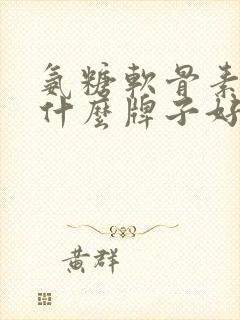 氨糖軟骨素
什麼牌子好
黄群